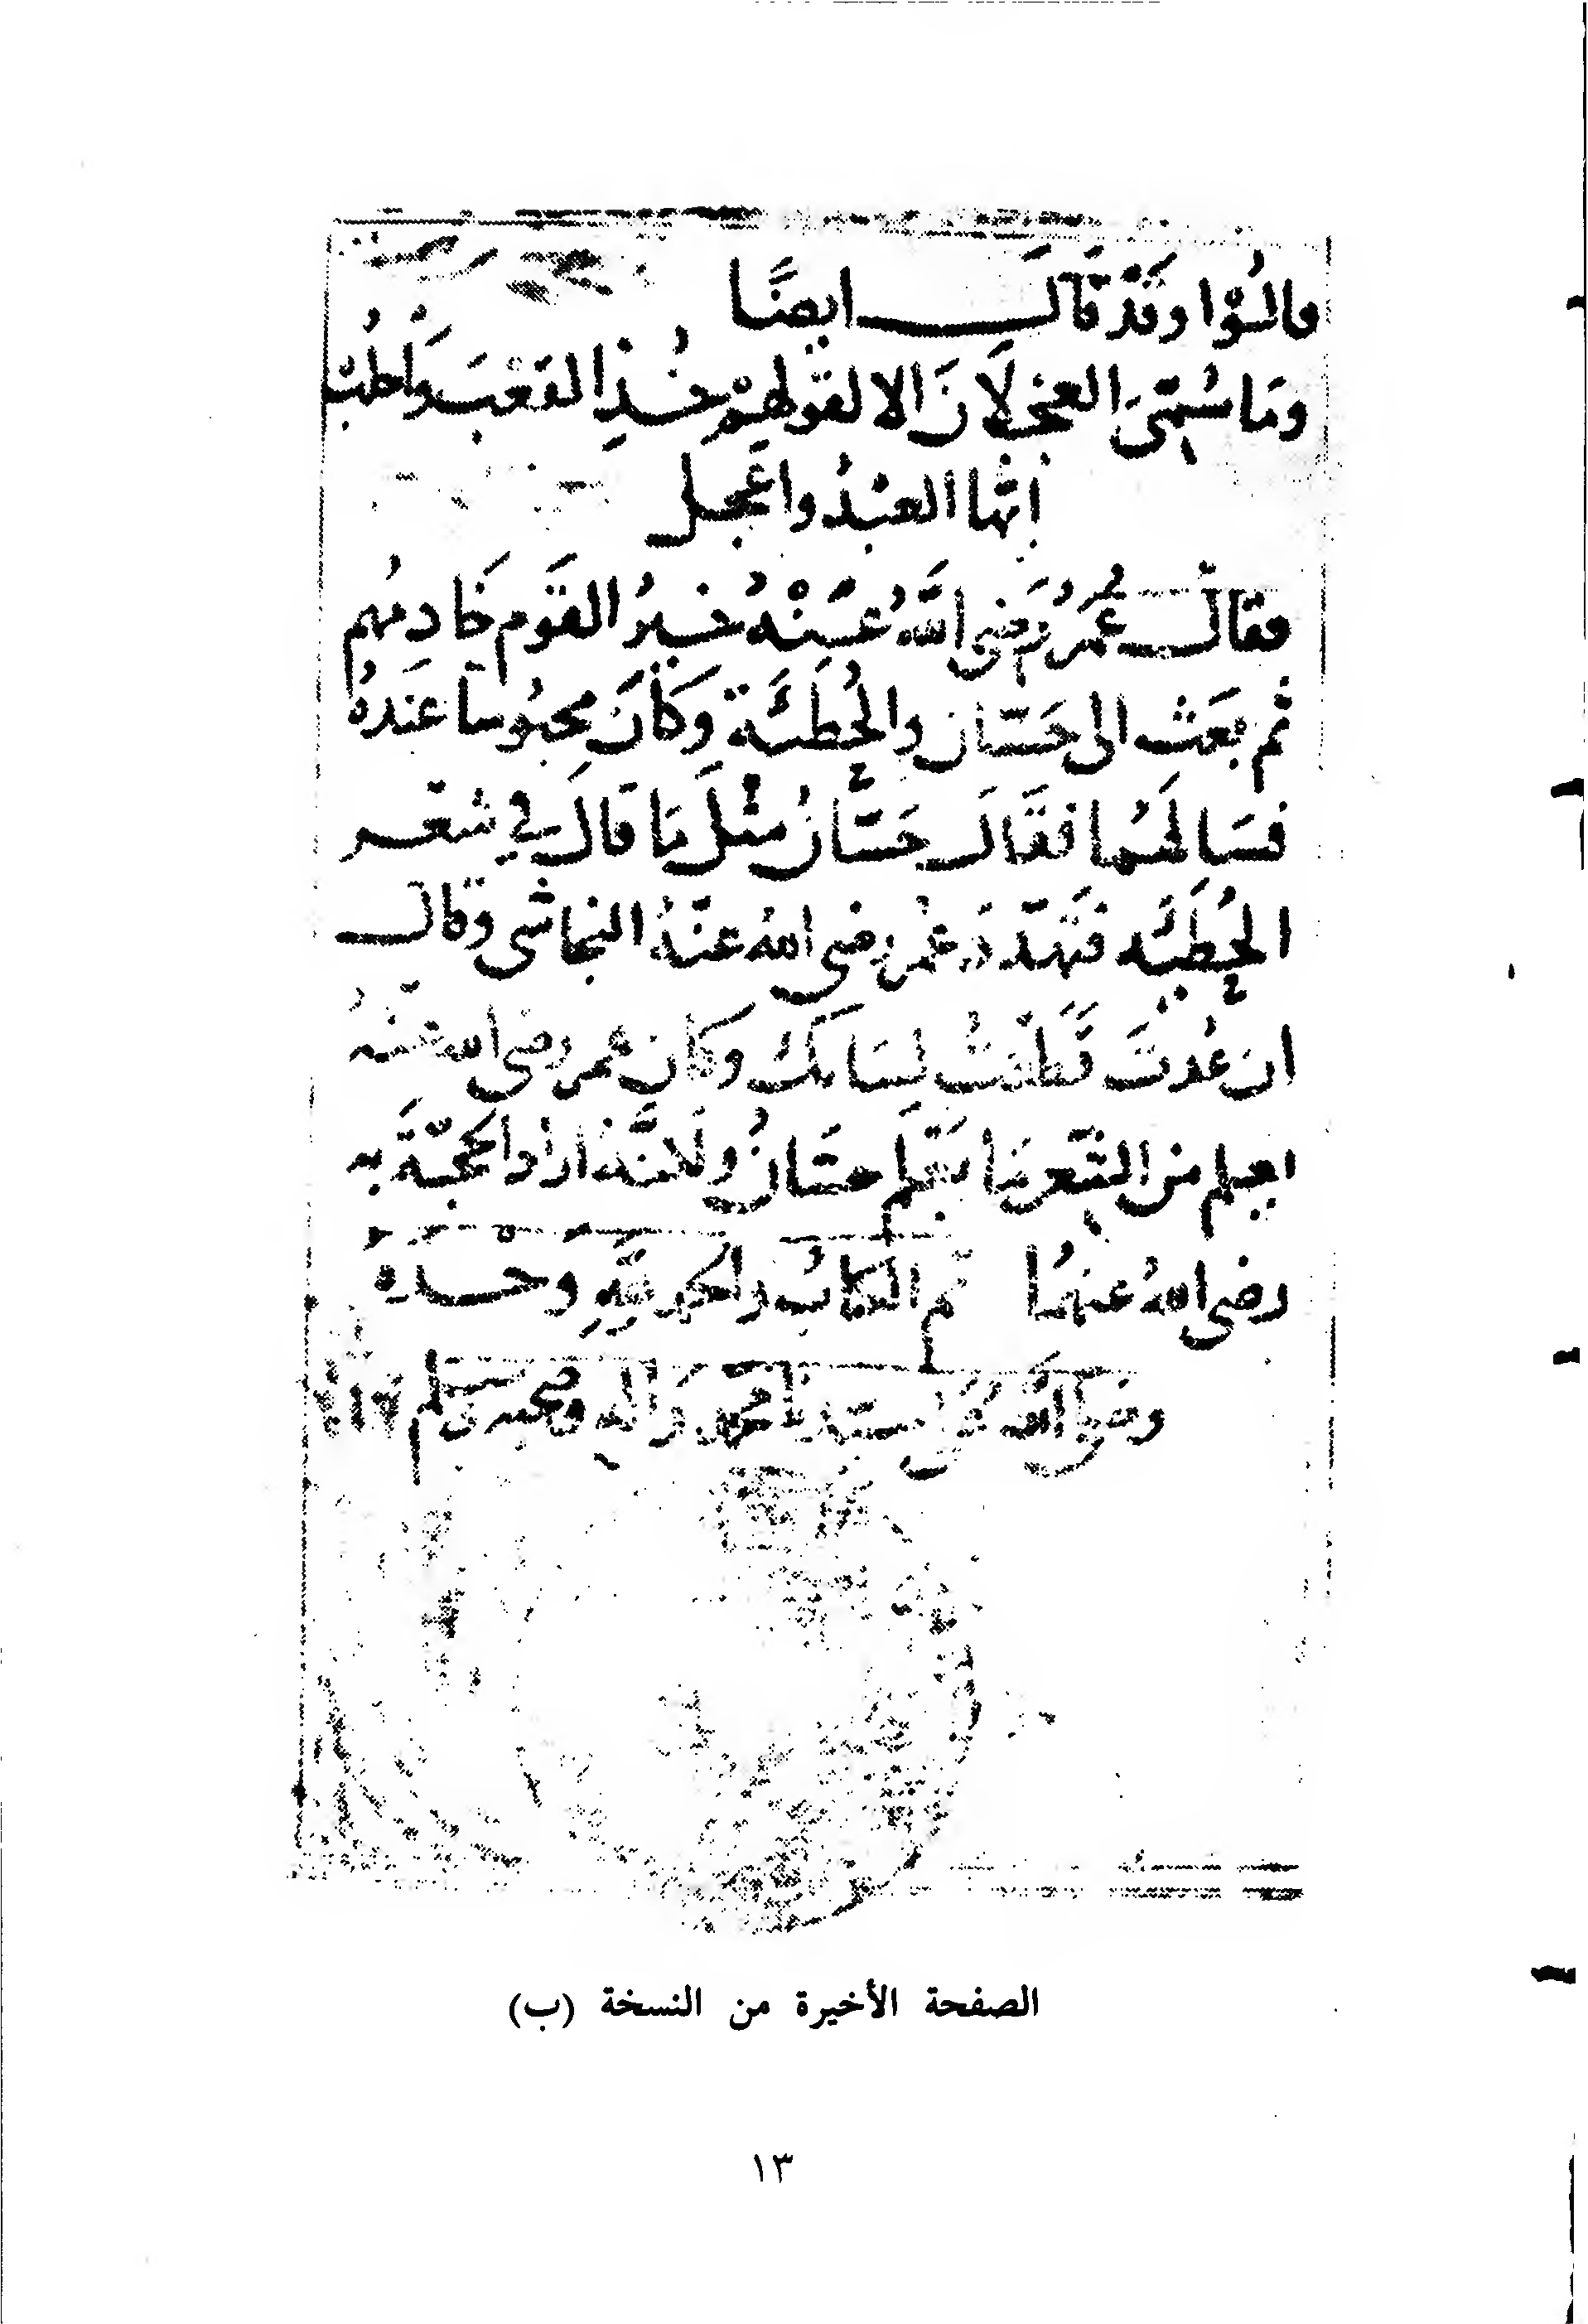 قالوا وقد قال ايضًا
وَمَا سُمِّىَ العَجْلَانَ الا لقولِهِمْ خُذِ القَعْبَ وَاحْلُبْ
ايُّها العَبْدُ واعْجَلِ
فقال عُمَرُ رَضِىَ اللَّهُ عَنْهُ خَيْرُ القَوْمِ خَادِمُهم
ثم بَعَثَ الى حَسَّان والحُطَيْئَة وَكَانَ محبُوسا عندَهُ
فَسَالَهُمَا فَقَالَ حَسَّانُ مِثْلَ مَا قَالَ فِي شعْر
الحُطَيْئَه فَتَهدّدَ عُمر رضى اللهُ عنهُ النجاشى وقال
ان عُدْتَ قَطَعْتُ لِسَانَكَ وَكان عمر رضى الله عَنْهُ
اعلم من الشّعر مَا يَعْلَم حَسَّانُ ولَكِنَّهُ ارادَ الحجّةَ به
رضى اللهُ عنهُمَا تم الكتابُ والحمد للَّهِ وَحْدَهُ
وصَلى اللَّه على سيّدنَا محمّدٍ وَالِهِ وصحبه وسلم
الصفحة الأخيرة من النسخة (ب)
١٣